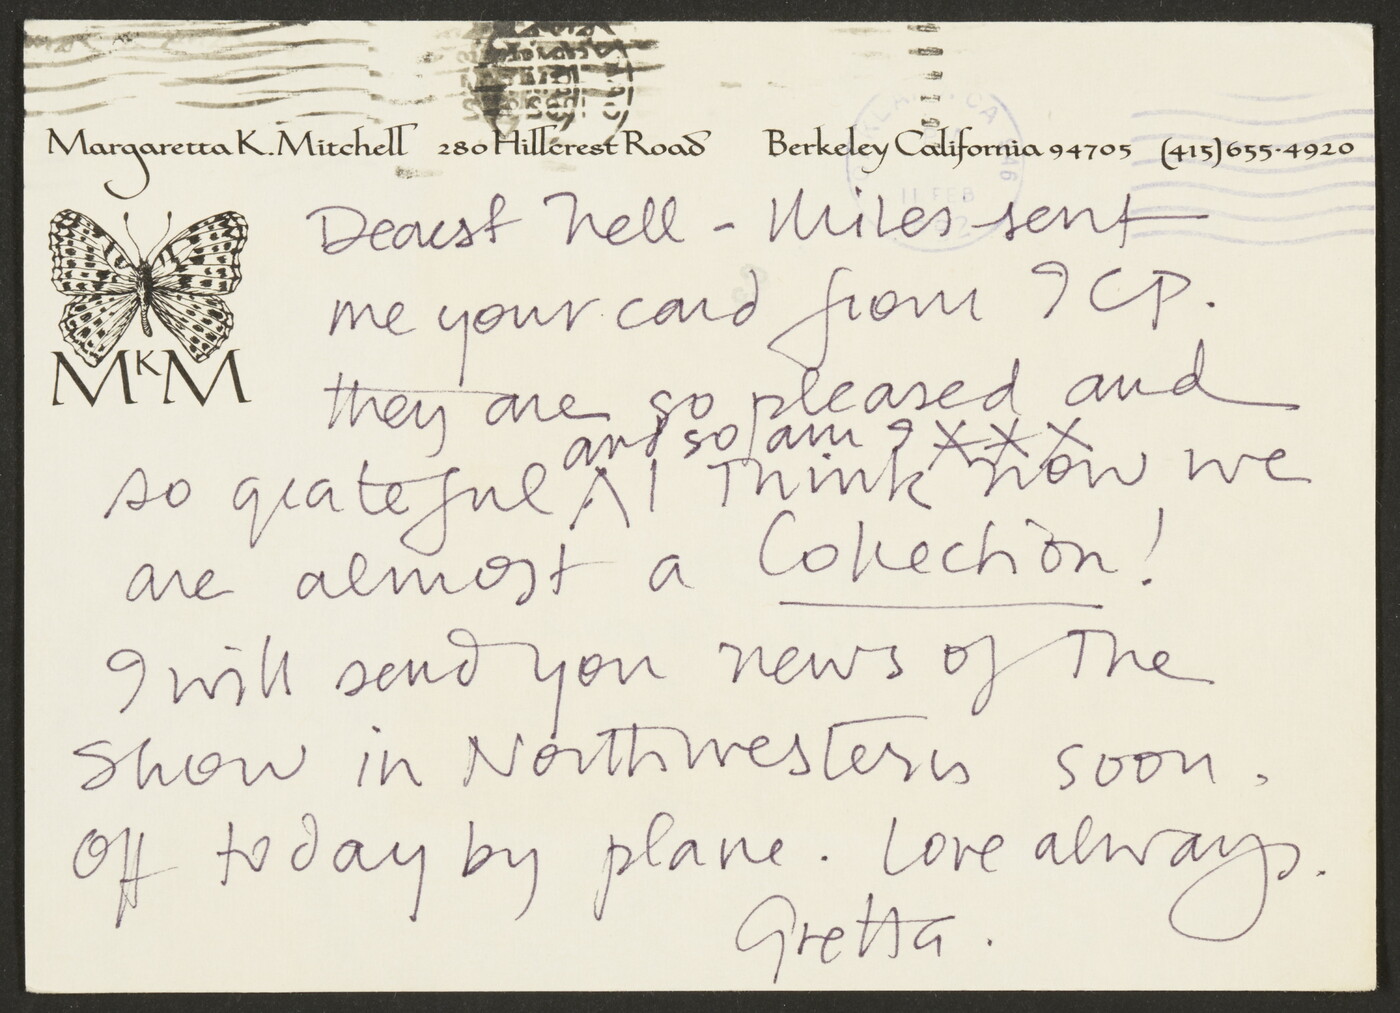 Margaretta K. Mitchell 280 Hillcrest Road Berkeley California 94705 (415) 655-4920
MKM
Dearest Nell - Miles sent
me your card from ICP.
they are so pleased and
and so am I XXX
so grateful ^ I Think now we
are almost a Collection!
I will send you news of The
Show in Northwestern soon.
Off today by plane. Love always.
Gretta.